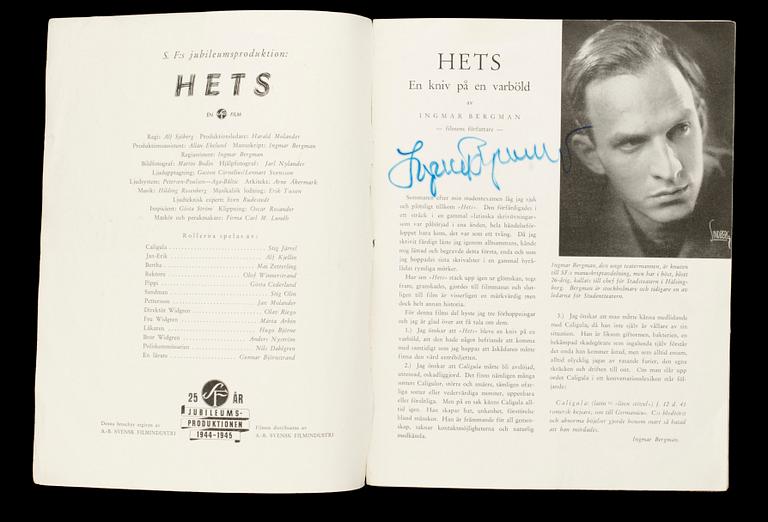 S. F:s jubileumsproduktion:
HETS
EN SF FILM
Regi: Alf Sjöberg Produktionsledare: Harald Molander
Produktionsassistent: Allan Ekelund Manuskript: Ingmar Bergman
Regiassistent: Ingmar Bergman
Bildfotograf: Martin Bodin Hjälpfotograf: Jarl Nylander
Ljudupptagning: Gaston Cornelius/Lennart Svensson
Ljudsystem: Petersen-Poulsen—Aga-Baltic Arkitekt: Arne Åkermark
Musik: Hilding Rosenberg Musikalisk ledning: Eric Tuxen
Ljudteknisk expert: Sven Rudestedt
Inspicient: Gösta Ström Klippning: Oscar Rosander
Maskör och perukmakare: Firma Carl M. Lundh
Rollerna spelas av:
Caligula Stig Järrel
Jan-Erik Alf Kjellin
Bertha Mai Zetterling
Rektorn Olof Winnerstrand
Pippi Gösta Cederlund
Sandman Stig Olin
Pettersson Jan Molander
Direktör Widgren Olav Riego
Fru Widgren Märta Arbin
Läkaren Hugo Björne
Bror Widgren Anders Nyström
Poliskommissarien Nils Dahlgren
En lärare Gunnar Björnstrand
25 SF ÅR
JUBILEUMS-
PRODUKTIONEN
1944-1945
Denna broschyr utgiven av
A.-B. SVENSK FILMINDUSTRI
Filmen distribueras av
A.-B. SVENSK FILMINDUSTRI
HETS
En kniv på en varböld
av
INGMAR BERGMAN
— filmens författare —
Ingmar Bergman
Sommaren efter min studentexamen låg jag sjuk
och plötsligt tillkom »Hets». Den förfärdigades i
ett sträck i en gammal »latinska skrivövningar»
som var påbörjad i ena änden, hela händelseför-
loppet bara kom, det var som ett tvång. Då jag
skrivit färdigt läste jag igenom alltsammans, kände
mig lättad och begravde denna första, enda och som
jag hoppades sista skrivalster i en gammal byrå-
lådas rymliga mörker.
Hur sen »Hets» stack upp igen ur glömskan, togs
fram, granskades, gjordes till filmmanus och slut-
ligen till film är visserligen en märkvärdig men
dock helt annan historia.
För denna film dyr hyste jag tre förhoppningar
och jag är glad över att få tala om dem.
1.) Jag önskar att »Hets» bleve en kniv på en
varböld, att den hade någon befriande att komma
med samtidigt som jag hoppas att åskådaren måtte
finna den värd entrébiljetten.
2.) Jag önskar att Caligula måtte bli avslöjad,
utrensad, oskadliggjord. Det finns nämligen många
sorters Caligulor, större och smärre, tämligen ofar-
liga sorter eller vedervärdiga monster, uppenbara
eller fördolda. Men på en sak känns Caligula all-
tid igen. Han skapar hat, oskenhet, förstörelse
bland människor. Han är främmande för all gemen-
skap, saknar kontaktmöjligheterna och naturlig
medkänsla.
SANDBERG
Ingmar Bergman, den unge teatermannen, är knuten
till SF:s manuskriptavdelning, men har i höst, blott
26-årig, kallats till chef för Stadsteatern i Hälsing-
borg. Bergman är stockholmare och tidigare en av
ledarna för Studentteatern.
3.) Jag önskar att man måtte känna medlidande
med Caligula, då han inte själv är vållare av sin
situation. Han är liksom giftormen, bakterien, en
bekämpad skadegörare som ingalunda själv förstår
det onda han kommer åstad, men som alltid ensam,
alltid olycklig jagas av rasande furier, den egna
skräcken och driften till ont. Om man slår upp
ordet Caligula i ett konversationslexikon står föl-
jande:
Caligula: (latin = »liten stövel») f. 12 d. 41
romersk kejsare, son till Germanicus. C:s blodtörst
och abnorma böjelser gjorde honom snart så hatad
att han mördades.
Ingmar Bergman.